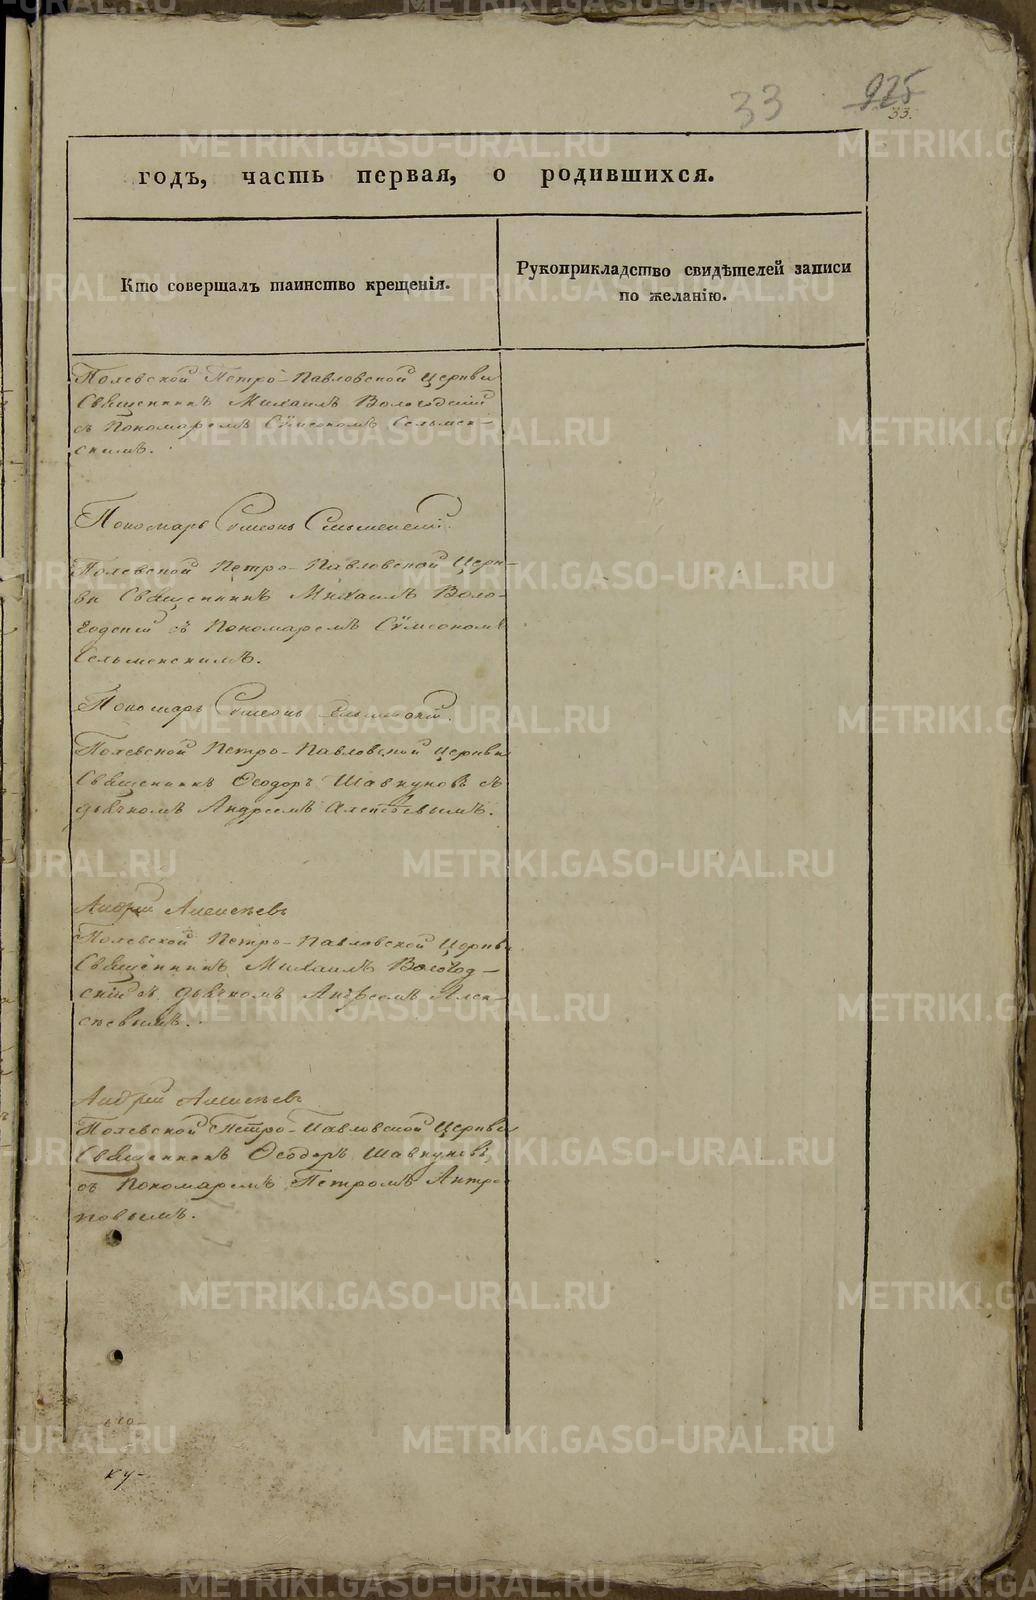 33 925
33.
годъ, часть первая, о родившихся.
Кто совершалъ таинство крещенія.
Рукоприкладство свидѣтелей записи
по желанію.
Полевской Петро-Павловской Церкви
Священникъ Михаилъ Вологодскій
съ Пономаремъ Сѵмеономъ Сельмен-
скимъ.
Пономарь Сѵмеонъ Сельменскій.
Полевской Петро-Павловской Церк-
ви Священникъ Михаилъ Воло-
годскій съ Пономаремъ Сѵмеономъ
Сельменскимъ.
Пономарь Сѵмеонъ Сельменскій.
Полевской Петро-Павловской Церкви
Священникъ Ѳеодоръ Шавкуновъ съ
дьячкомъ Андреемъ Алексѣевымъ.
Андрей Алексѣевъ
Полевской Петро-Павловской Церкви
Священникъ Михаилъ Вологод-
скій съ дьячкомъ Андреемъ Алек-
сѣевымъ.
Андрей Алексѣевъ
Полевской Петро-Павловской Церкви
Священникъ Ѳеодоръ Шавкуновъ
съ Пономаремъ Петромъ Антро-
повымъ.
ку-
METRIKI.GASO-URAL.RU